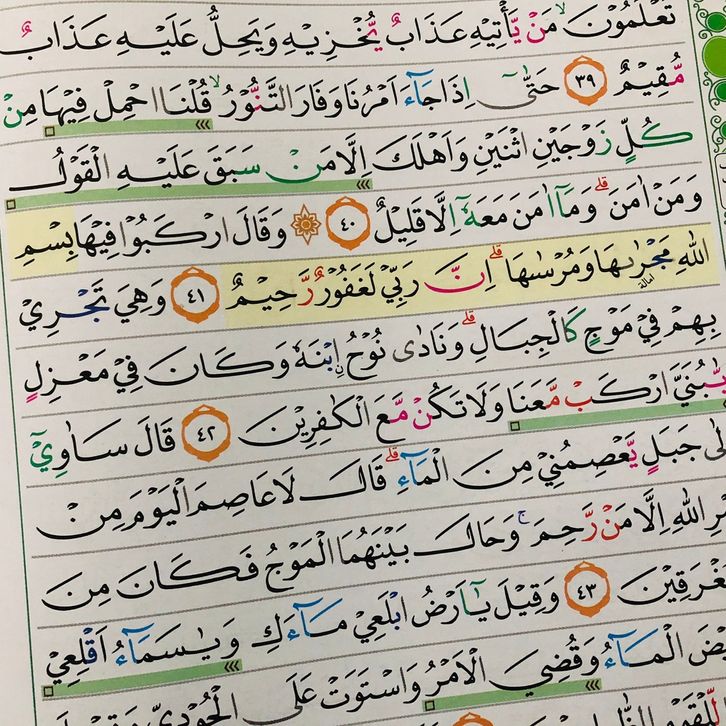 تَعْلَمُونَۙ مَنْ يَّأْتِيْهِ عَذَابٌ يُّخْزِيْهِ وَيَحِلُّ عَلَيْهِ عَذَابٌ
مُّقِيْمٌ ٣٩ حَتّٰىٓ اِذَا جَاۤءَ اَمْرُنَا وَفَارَ التَّنُّوْرُۙ قُلْنَا احْمِلْ فِيْهَا مِنْ
كُلٍّ زَوْجَيْنِ اثْنَيْنِ وَاَهْلَكَ اِلَّا مَنْ سَبَقَ عَلَيْهِ الْقَوْلُ
وَمَنْ اٰمَنَ ۗوَمَآ اٰمَنَ مَعَهٗٓ اِلَّا قَلِيْلٌ ٤٠ ۞ وَقَالَ ارْكَبُوْا فِيْهَا بِسْمِ
اللّٰهِ مَجْرٰ۪ىهَا وَمُرْسٰىهَا ۗاِنَّ رَبِّيْ لَغَفُوْرٌ رَّحِيْمٌ ٤١ وَهِيَ تَجْرِيْ
امالة
بِهِمْ فِيْ مَوْجٍ كَالْجِبَالِۗ وَنَادٰى نُوْحُ ࣙابْنَهٗ وَكَانَ فِيْ مَعْزِلٍ
يّٰبُنَيَّ ارْكَبْ مَّعَنَا وَلَا تَكُنْ مَّعَ الْكٰفِرِيْنَ ٤٢ قَالَ سَاٰوِيْٓ
لٰى جَبَلٍ يَّعْصِمُنِيْ مِنَ الْمَاۤءِ ۗقَالَ لَا عَاصِمَ الْيَوْمَ مِنْ
مْرِ اللّٰهِ اِلَّا مَنْ رَّحِمَ ۚوَحَالَ بَيْنَهُمَا الْمَوْجُ فَكَانَ مِنَ
مُغْرَقِيْنَ ٤٣ وَقِيْلَ يٰٓاَرْضُ ابْلَعِيْ مَاۤءَكِ وَيٰسَمَاۤءُ اَقْلِعِيْ
يْضَ الْمَاۤءُ وَقُضِيَ الْاَمْرُ وَاسْتَوَتْ عَلَى الْجُوْدِيِّ وَقِيْلَ